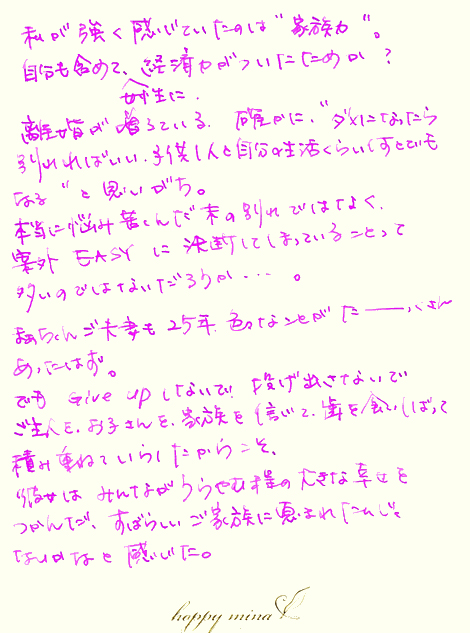 私が強く感じていたのは"家族力"。
自分も含めて、経済力がついたためか？
女性に.
離婚が増えている。確かに、"ダメになったら
別れればいい、子供1人と自分の生活くらい何とでも
なる"と思いがち。
本当に悩み苦しんだ末の別れではなく、
案外 EASY に決断してしまっていることって
多いのではないだろうか・・・。
まあちゃんご夫妻も25年、色々なことがた——くさん
あったはず。
でも Give up しないで、投げ出さないで
ご主人を、お子さんを、家族を信じて、歯を食いしばって
積み重ねていらしたからこそ、
彼女はみんながうらやむ様の大きな幸せを
つかんだ、すばらしいご家族に恵まれたんじゃ
ないかなと感じた。
happy mina